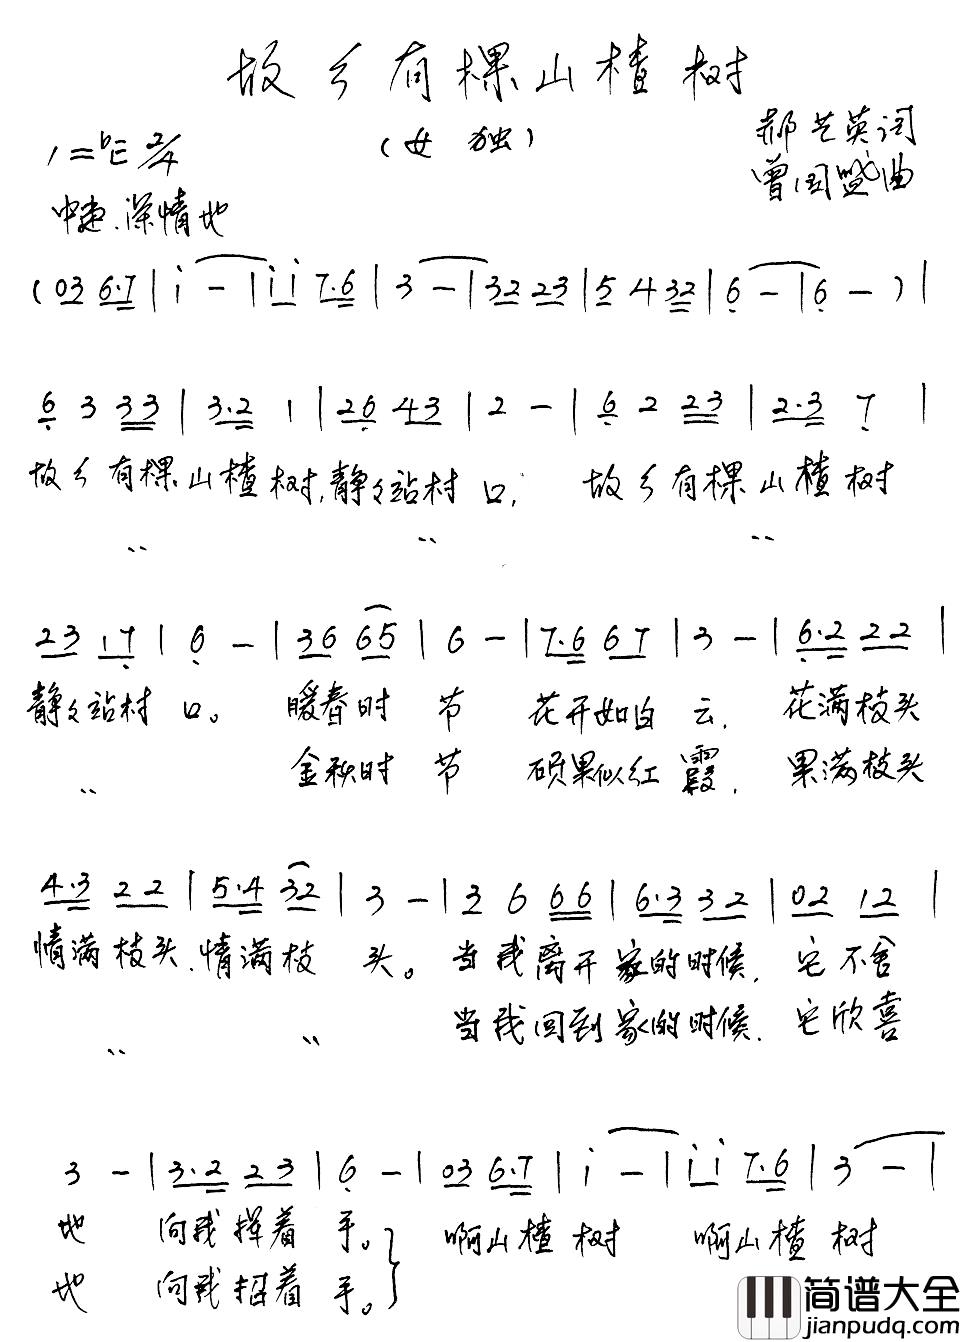 故乡有棵山楂树
(女 独)
郝艺英词
1=♭E 2/4
曾国盛曲
中速.深情地
(03 6·7 | i - | i i 7·6 | 3 - | 32 23 | 5 4 32 | 6 - | 6 - ) |
6 3 33 | 3·2 1 | 26 43 | 2 - | 6 2 23 | 2·3 7 |
故乡有棵山楂树,静々站村口, 故乡有棵山楂树
〃 〃 〃
23 17 | 6 - | 36 65 | 6 - | 7·6 67 | 3 - | 6·2 22 |
静々站村口。 暖春时 节 花开如白 云, 花满枝头
〃 金秋时 节 硕果似红 霞, 果满枝头
4·3 22 | 5·4 32 | 3 - | 3 6 66 | 6·3 32 | 02 12 |
情满枝头,情满枝 头。 当我离开家的时候, 它不舍
〃 〃 当我回到家的时候, 它欣喜
3 - | 3·2 23 | 6 - | 03 6·7 | i - | i i 7·6 | 3 - |
地 向我挥着 手。 啊山楂树 啊山楂树
地 向我招着 手。
简谱大全
jianpudq.com